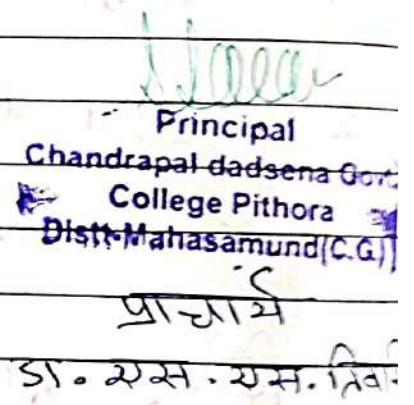 Principal
Chandrapal dadsena Govt
College Pithora
Distt-Mahasamund(C.G)
प्राचार्य
डा. एस. एस.